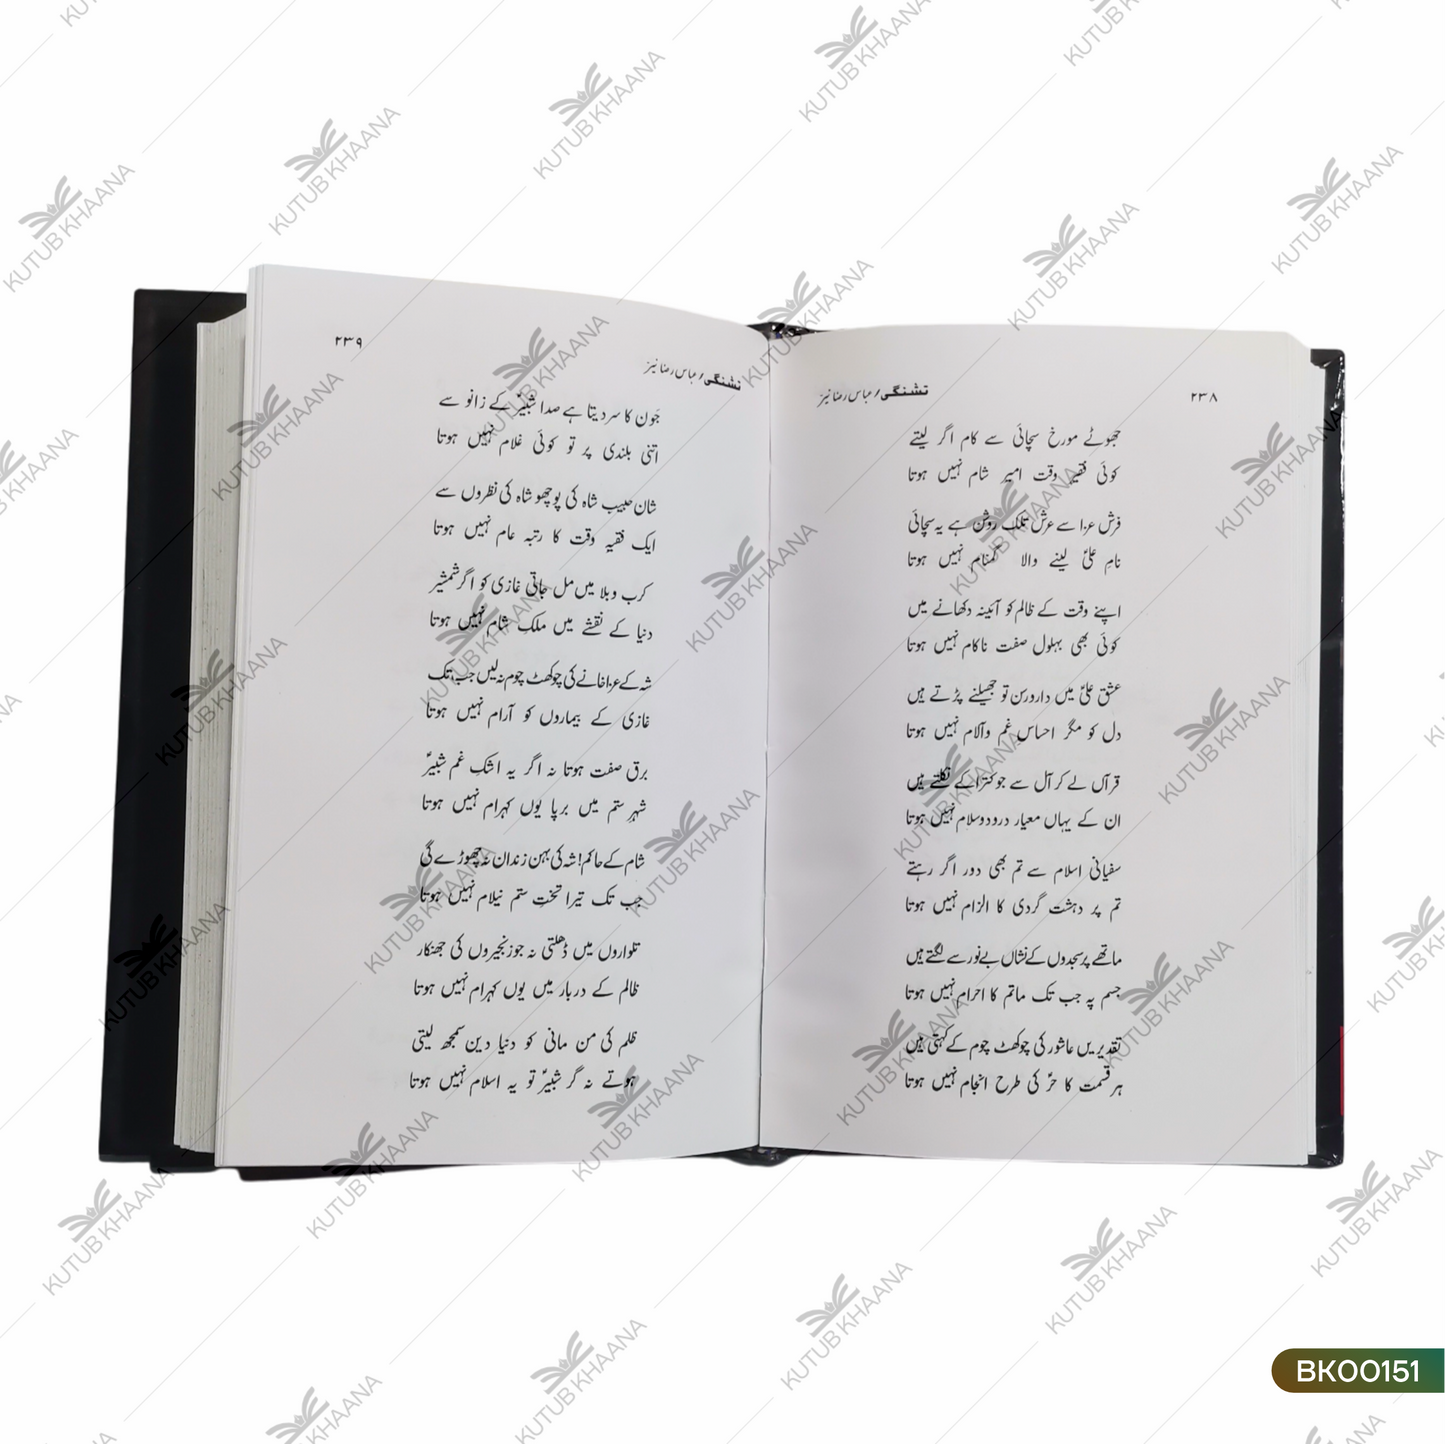 تشنگی / عباس رضا نیّر
۲۳۸
جھوٹے مورخ سچائی سے کام اگر لیتے
کوئی فقیہِ وقت امیرِ شام نہیں ہوتا
فرشِ عزا سے عرش تلک روشن ہے یہ سچائی
نامِ علیؑ لینے والا گمنام نہیں ہوتا
اپنے وقت کے ظالم کو آئینہ دکھانے میں
کوئی بھی بہلول صفت ناکام نہیں ہوتا
عشقِ علیؑ میں دارورسن تو جھیلنے پڑتے ہیں
دل کو مگر احساسِ غم وآلام نہیں ہوتا
قرآں لے کر آلؑ سے جو کترا کے نکلتے ہیں
ان کے یہاں معیارِ درودوسلام نہیں ہوتا
سفیانی اسلام سے تم بھی دور اگر رہتے
تم پر دہشت گردی کا الزام نہیں ہوتا
ماتھے پر سجدوں کے نشاں بے نور سے لگتے ہیں
جسم پہ جب تک ماتم کا احرام نہیں ہوتا
تقدیریں عاشور کی چوکھٹ چوم کے کہتی ہیں
ہر قسمت کا حرؑ کی طرح انجام نہیں ہوتا
تشنگی / عباس رضا نیّر
۲۳۹
جَون کا سر دیتا ہے صدا شبیرؑ کے زانو سے
اتنی بلندی پر تو کوئی غلام نہیں ہوتا
شانِ حبیبِ شاہ کی پوچھو شاہ کی نظروں سے
ایک فقیہِ وقت کا رتبہ عام نہیں ہوتا
کرب و بلا میں مل جاتی غازی کو اگر شمشیر
دنیا کے نقشے میں ملکِ شام نہیں ہوتا
شہ کے عزاخانے کی چوکھٹ چوم نہ لیں جب تک
غازی کے بیماروں کو آرام نہیں ہوتا
برق صفت ہوتا نہ اگر یہ اشکِ غمِ شبیرؑ
شہرِ ستم میں برپا یوں کہرام نہیں ہوتا
شام کے حاکم! شہ کی بہن زندان نہ چھوڑے گی
جب تک تیرا تختِ ستم نیلام نہیں ہوتا
تلواروں میں ڈھلتی نہ جو زنجیروں کی جھنکار
ظالم کے دربار میں یوں کہرام نہیں ہوتا
ظلم کی من مانی کو دنیا دین سمجھ لیتی
ہوتے نہ گر شبیرؑ تو یہ اسلام نہیں ہوتا
KUTUB KHAANA
BK00151